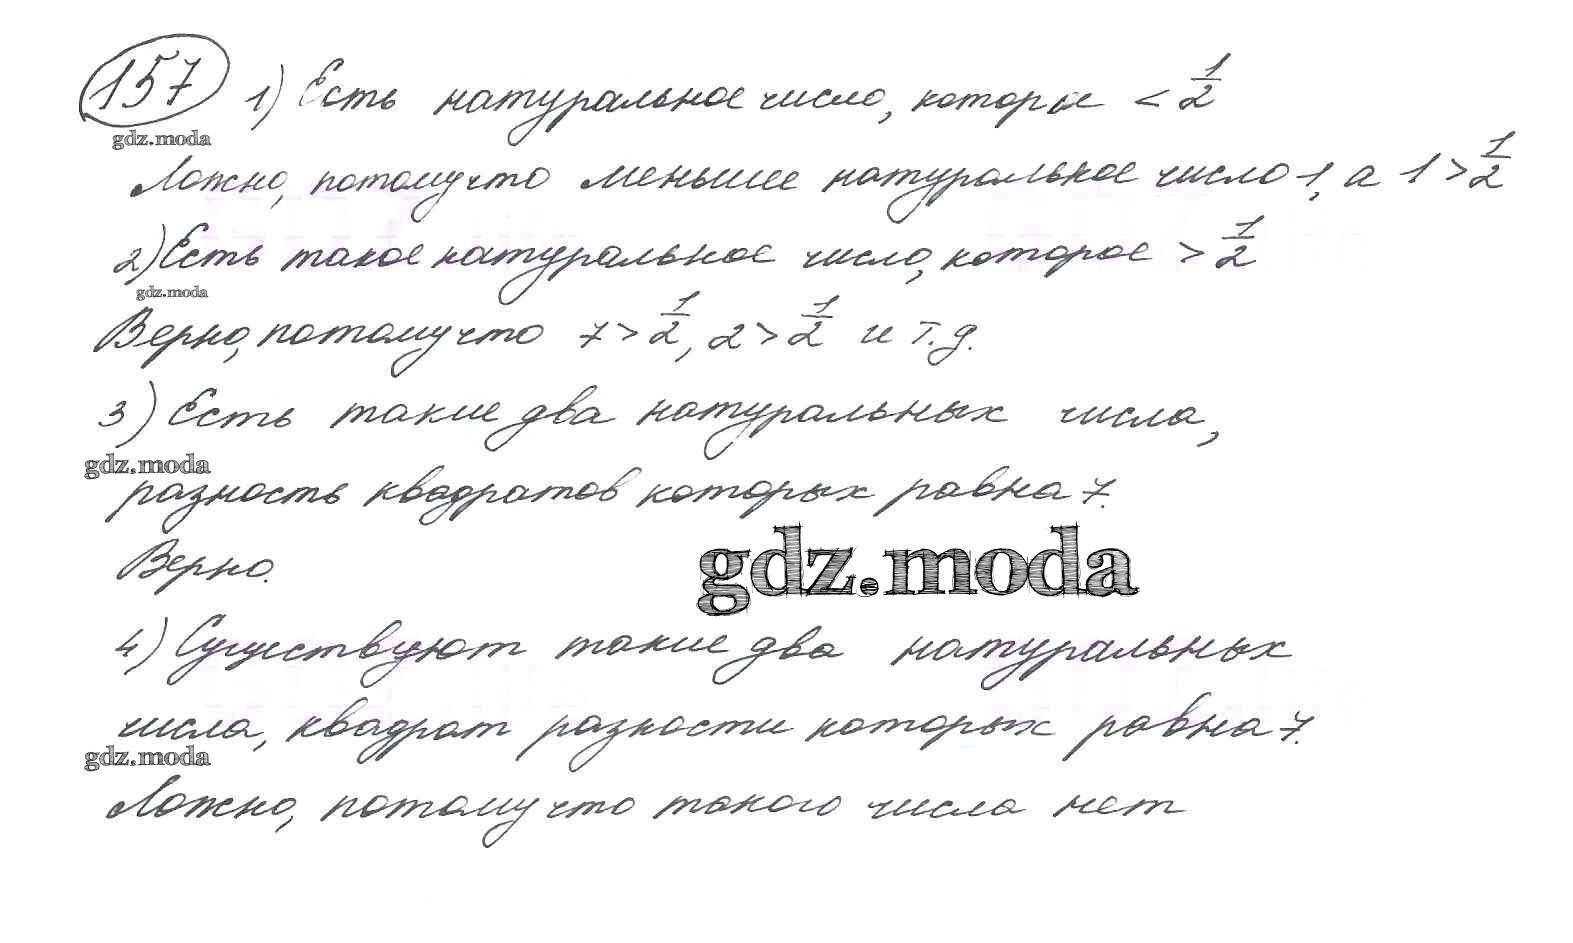 157 1) Есть натуральное число, которое < 1/2
gdz.moda
Ложно, потому что меньшее натуральное число 1, а 1 > 1/2
2) Есть такое натуральное число, которое > 1/2
gdz.moda
Верно, потому что 7 > 1/2, 2 > 1/2 и т.д.
3) Есть такие два натуральных числа,
gdz.moda
разность квадратов которых равна 7.
Верно.
gdz.moda
4) Существуют такие два натуральных
числа, квадрат разности которых равна 7.
gdz.moda
Ложно, потому что такого числа нет